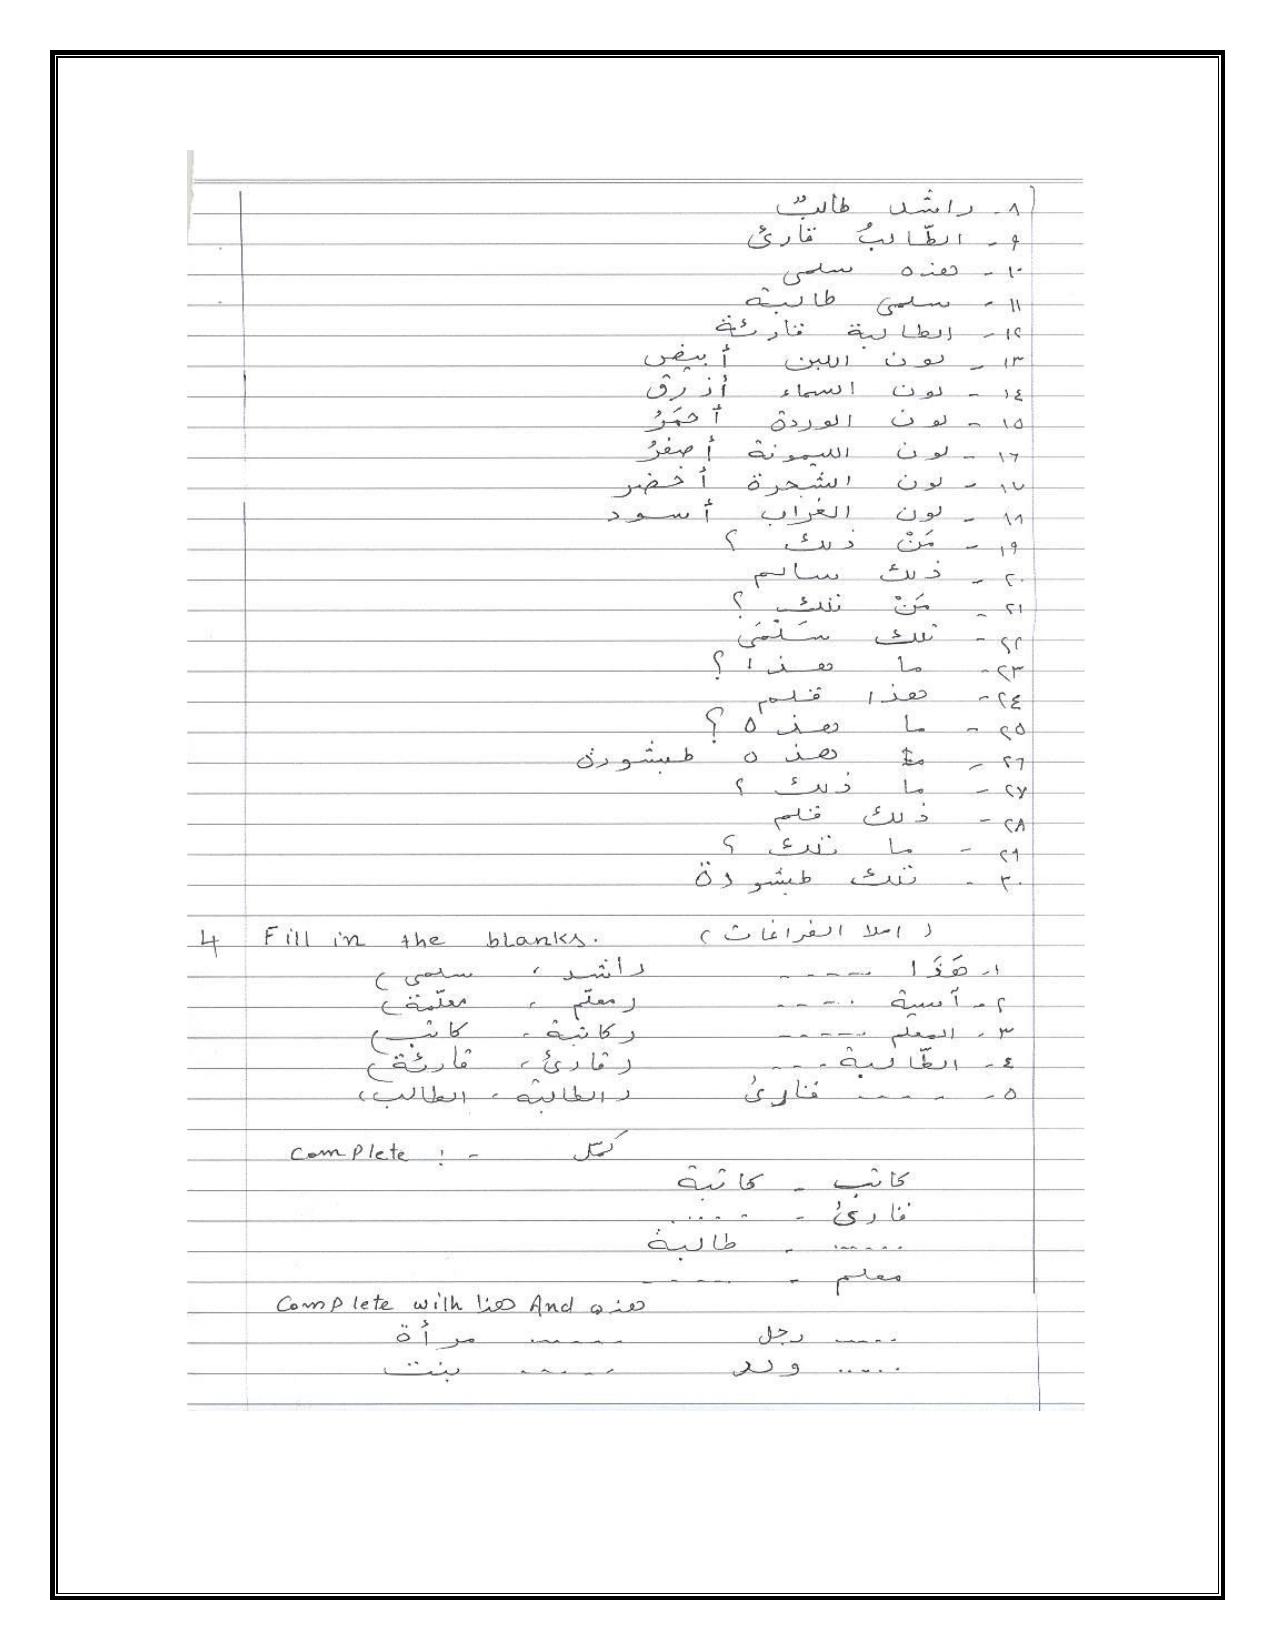 ٨- راشد طالبٌ
٩- الطّالبُ قارئ
١٠- هذه سلمى
١١- سلمى طالبة
١٢- الطالبة قارئة
١٣- لون اللبن أبيض
١٤- لون السماء أزرق
١٥- لون الوردة أحمَرُ
١٦- لون الليمونة أصفرُ
١٧- لون الشجرة أخضر
١٨- لون الغراب أسود
١٩- مَنْ ذلك ؟
٢٠- ذلك سالم
٢١- مَنْ تلك ؟
٢٢- تلك سَلْمَى
٢٣- ما هذا ؟
٢٤- هذا قلم
٢٥- ما هذه ؟
٢٦- هذه طبشورة
٢٧- ما ذلك ؟
٢٨- ذلك قلم
٢٩- ما تلك ؟
٣٠- تلك طبشورة
4 Fill in the blanks. (املا الفراغات)
١- هَذَا ----- (راشد، سلمى)
٢- آسية ----- (معلّم، معلّمة)
٣- المعلم ----- (كاتبة، كاتب)
٤- الطّالبة ---- (قارئ، قارئة)
٥- ----- قارئ (الطالبة، الطالب)
Complete :- كمّل
كاتب - كاتبة
قارئ - .....
...... - طالبة
معلم - -----
Complete with هذا And هذه
..... رجل ...... مرأة
..... ولد ...... بنت